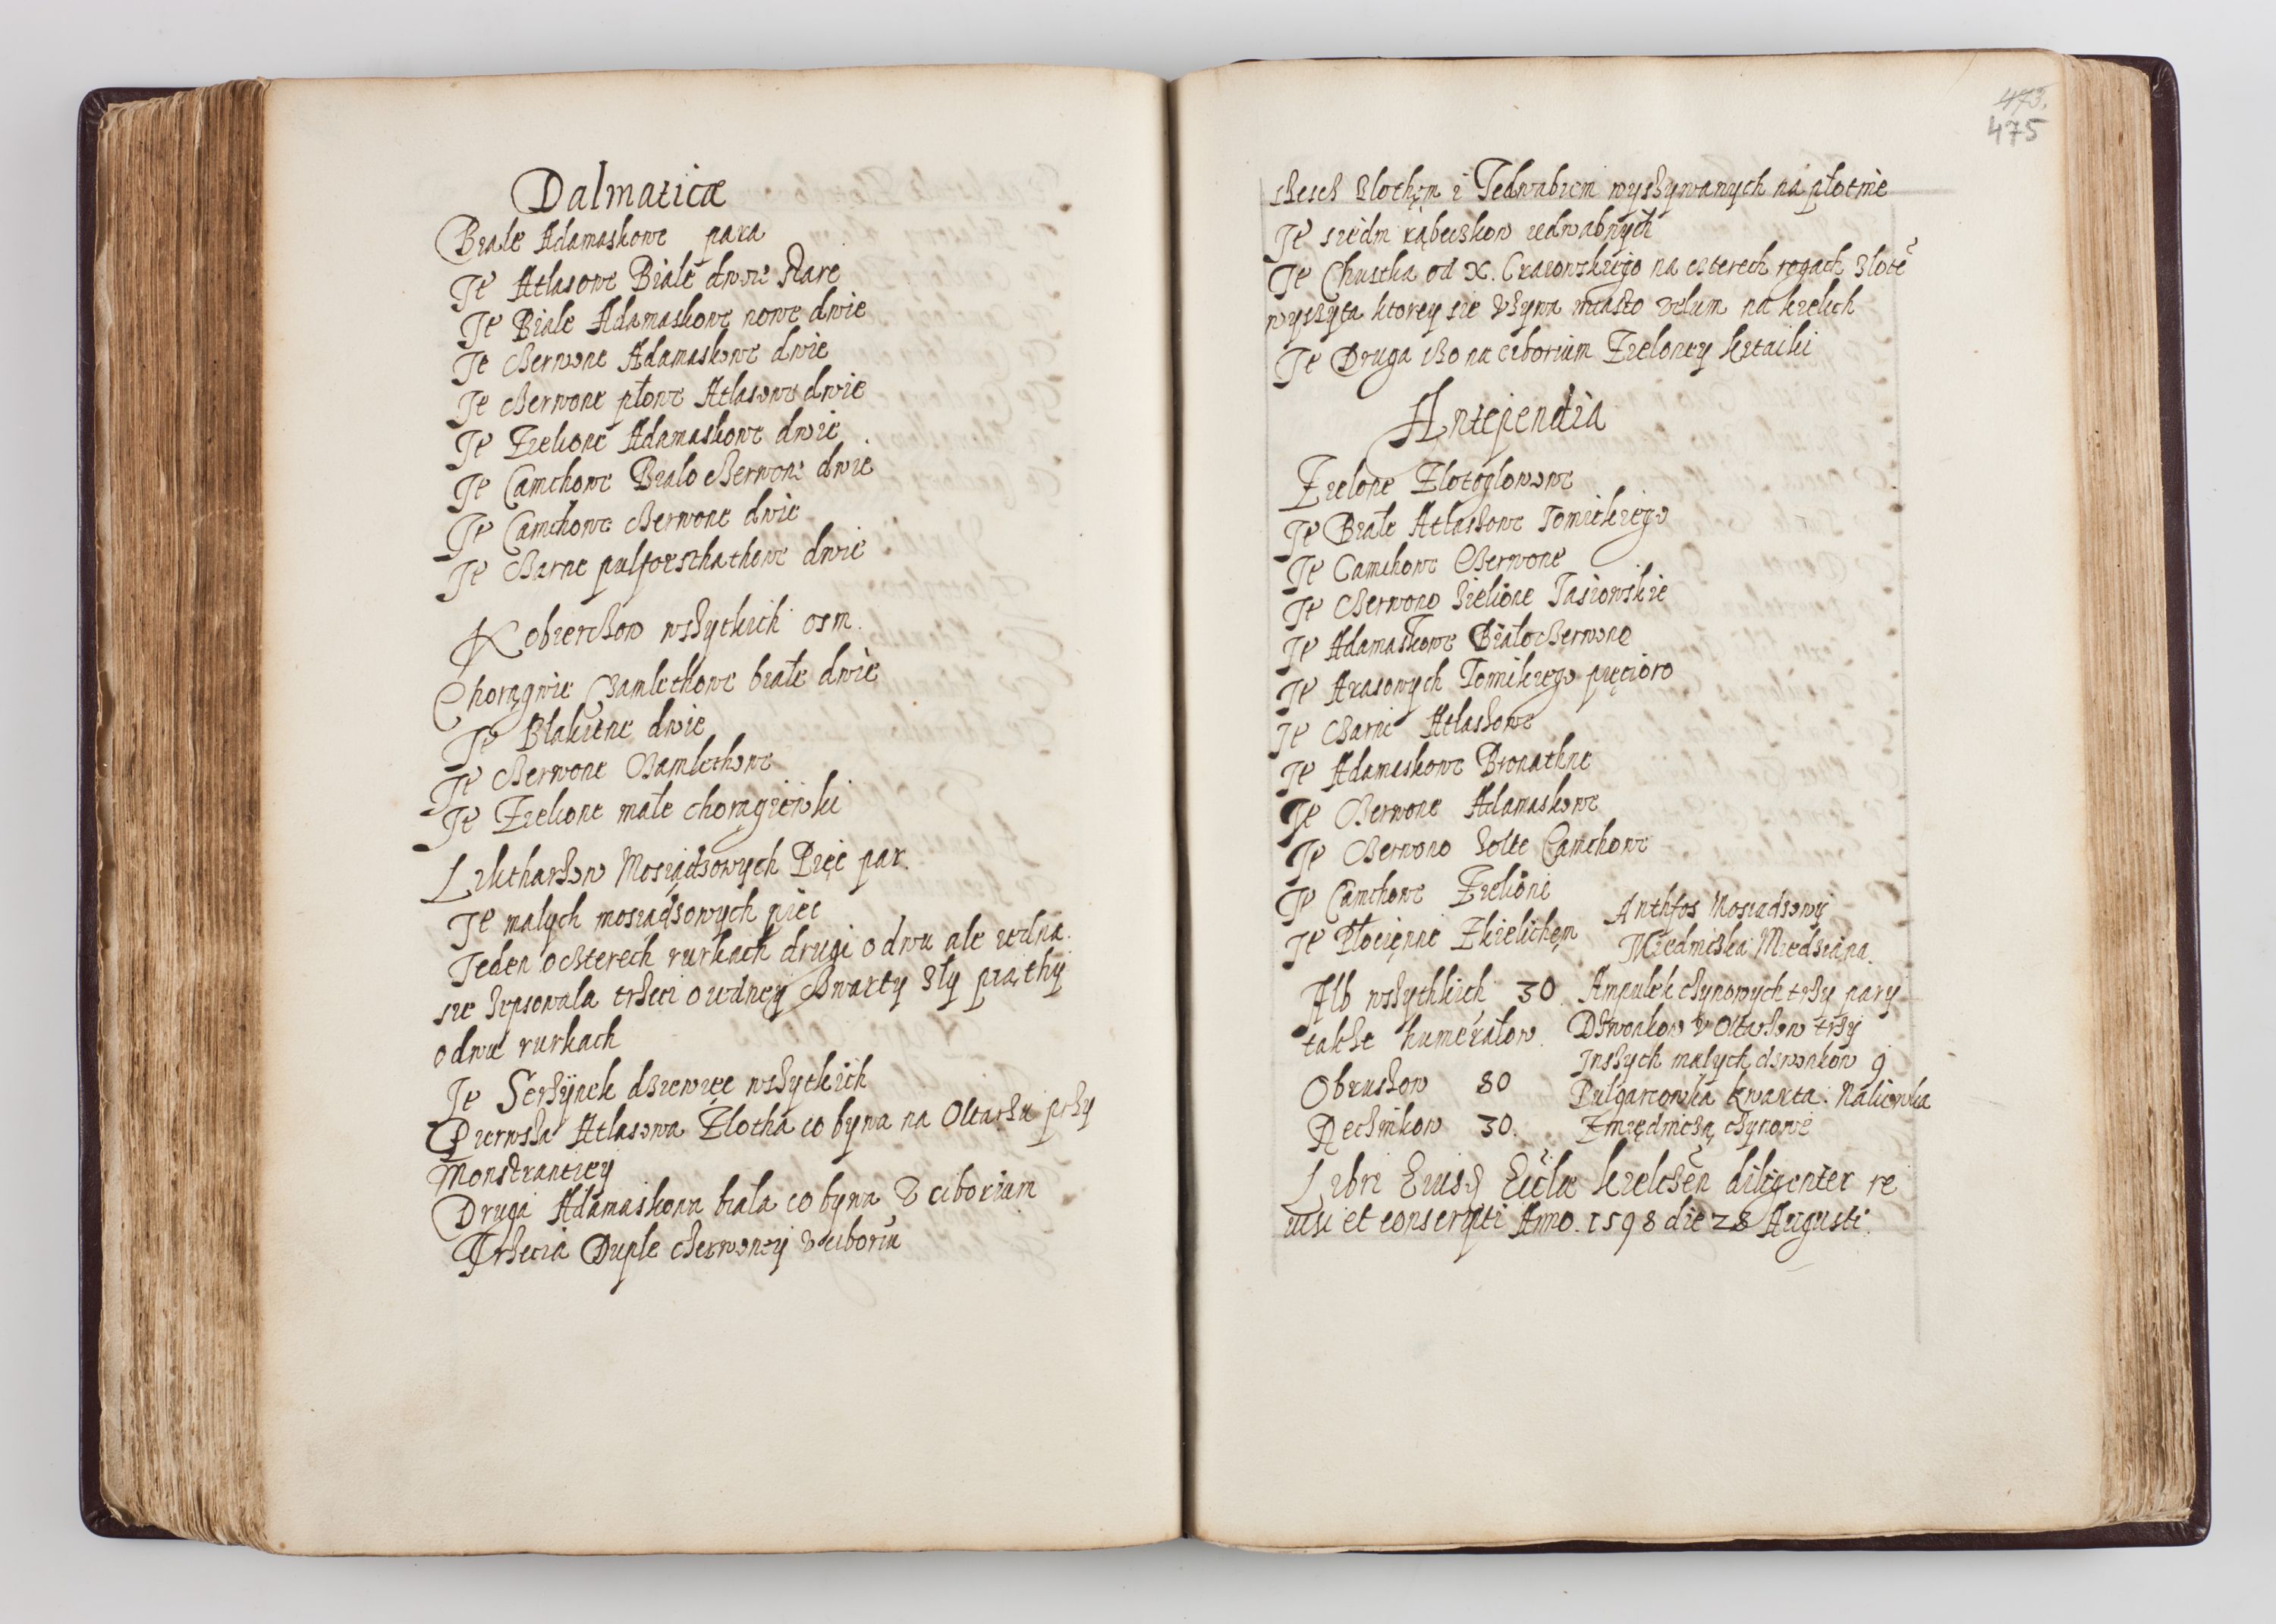 Dalmaticæ
Biale Adamaskowe para
Ite Atlasowe Biale dwie stare
Ite Biale Adamaskowe nowe dwie
Ite Czerwone Adamaskowe dwie
Ite Czerwone płowe Atlasowe dwie
Ite Zielione Adamaskowe dwie
Ite Camchowe Bialo Czerwone dwie
Ite Camchowe Czerwone dwie
Ite Czarne dwie
Kobierczow wszytkich osm.
Chorągwie Czamlethowe białe dwie
Ite Błakitne dwie
Ite Czerwone Czamlethowe
Ite Zielione małe chorągiewki
Liktharzow Mosiądzowych Pięć par.
Ite malych mosiądzowych pięc
Jeden o czterech rurkach drugi o dwu ale iedna
sie zepsowala trzeci o iedney Czwarty zły piąthy
o dwu rurkach
Ite Serzynek dziewięc wszytkich
Pierwsza Atlasowa Złotha co bywa na Oltarzu przy
Monstrantiey
Druga Adamaskowa biała co bywa v ciborium
Trzecia Duple czerwoney v ciboriu
473.
475
szesch zlothem i Jedwabiem wyszywanych na płotnie
Ite siedm rąbeczkow iedwabnych
Ite Chustka od X. na czterech rogach złotē
wyszyta ktorey sie vżywa miasto velum na kielich
Ite Druga cżo na ciborium Zieloney kitaiki
Antependia
Zielone Zlotogłowowe
Ite Białe Atlaszowe Tomickiego
Ite Camchowe Czerwone
Ite Czerwono Zielione Jasiowskie
Ite Adamaszkowe Białoczerwone
Ite Arasowych Tomickiego pięcioro
Ite Czarne Atlaszowe
Ite Adamaskowe Bronathne
Ite Czerwone Adamaskowe
Ite Czerwono żolte Camchowe
Ite Camchowe Zielione
Ite Płocienne Zkielichem
Anthfos Mosiadzowy
Miedniczka Miedziana.
Alb wszythkich 30
także humerałow.
Obrusow 80
Ręcznikow 30.
Ampulek cżynowych trzy pary
Dzwonkow v Oltarzow trzy
Inszych malych dzwonkow 9
Pulgarcowka kwarta. Naliewka
Zmiędniczą cżynowe
Libri Eiusq Eccliæ kielczēn diligenter re
uisi et conscripti Anno. 1598 die 28 Augusti.